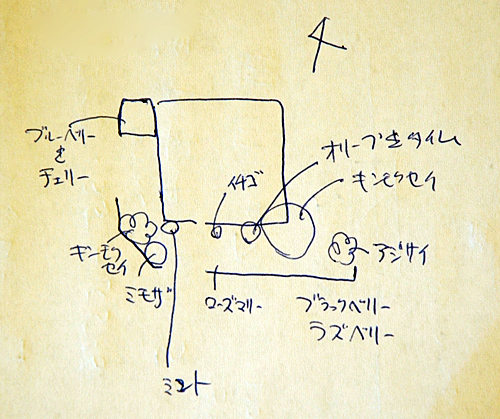 オリーブ&タイム
ブルーベリー
&
チェリー
イチゴ
キンモクセイ
アジサイ
ギンモク
セイ
ミモザ
ローズマリー
ブラックベリー
ラズベリー
ミント